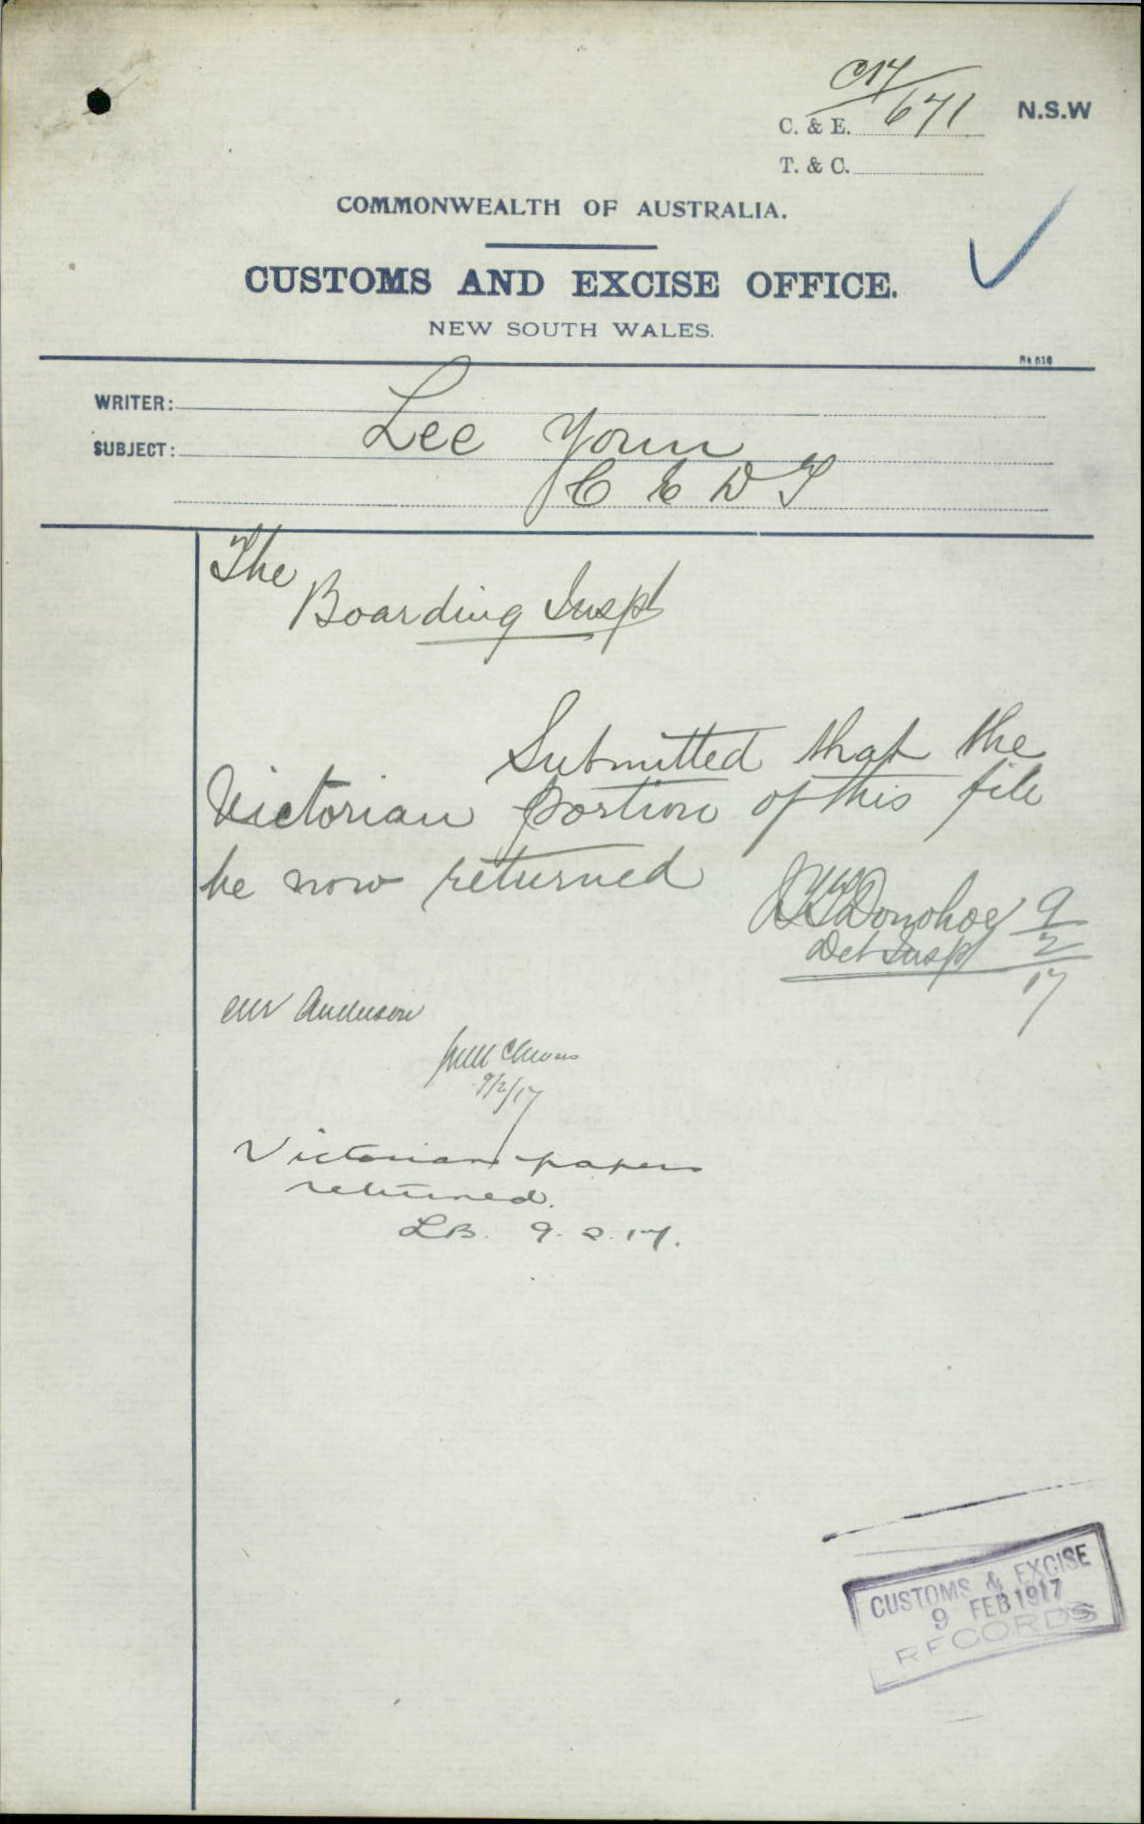 C17/671
C. & E.
N.S.W
T. & C.
COMMONWEALTH OF AUSTRALIA.
CUSTOMS AND EXCISE OFFICE.
NEW SOUTH WALES.
WRITER:
SUBJECT: Lee Youn
C E D T
The
Boarding Inspt
Submitted that the
Victorian portion of this file
be now returned
Donohoe 9/2/17
Det Insp
Mr Anderson
9/2/17
Victorian papers
returned.
LB. 9.2.17.
CUSTOMS & EXCISE
9 FEB 1917
RECORDS